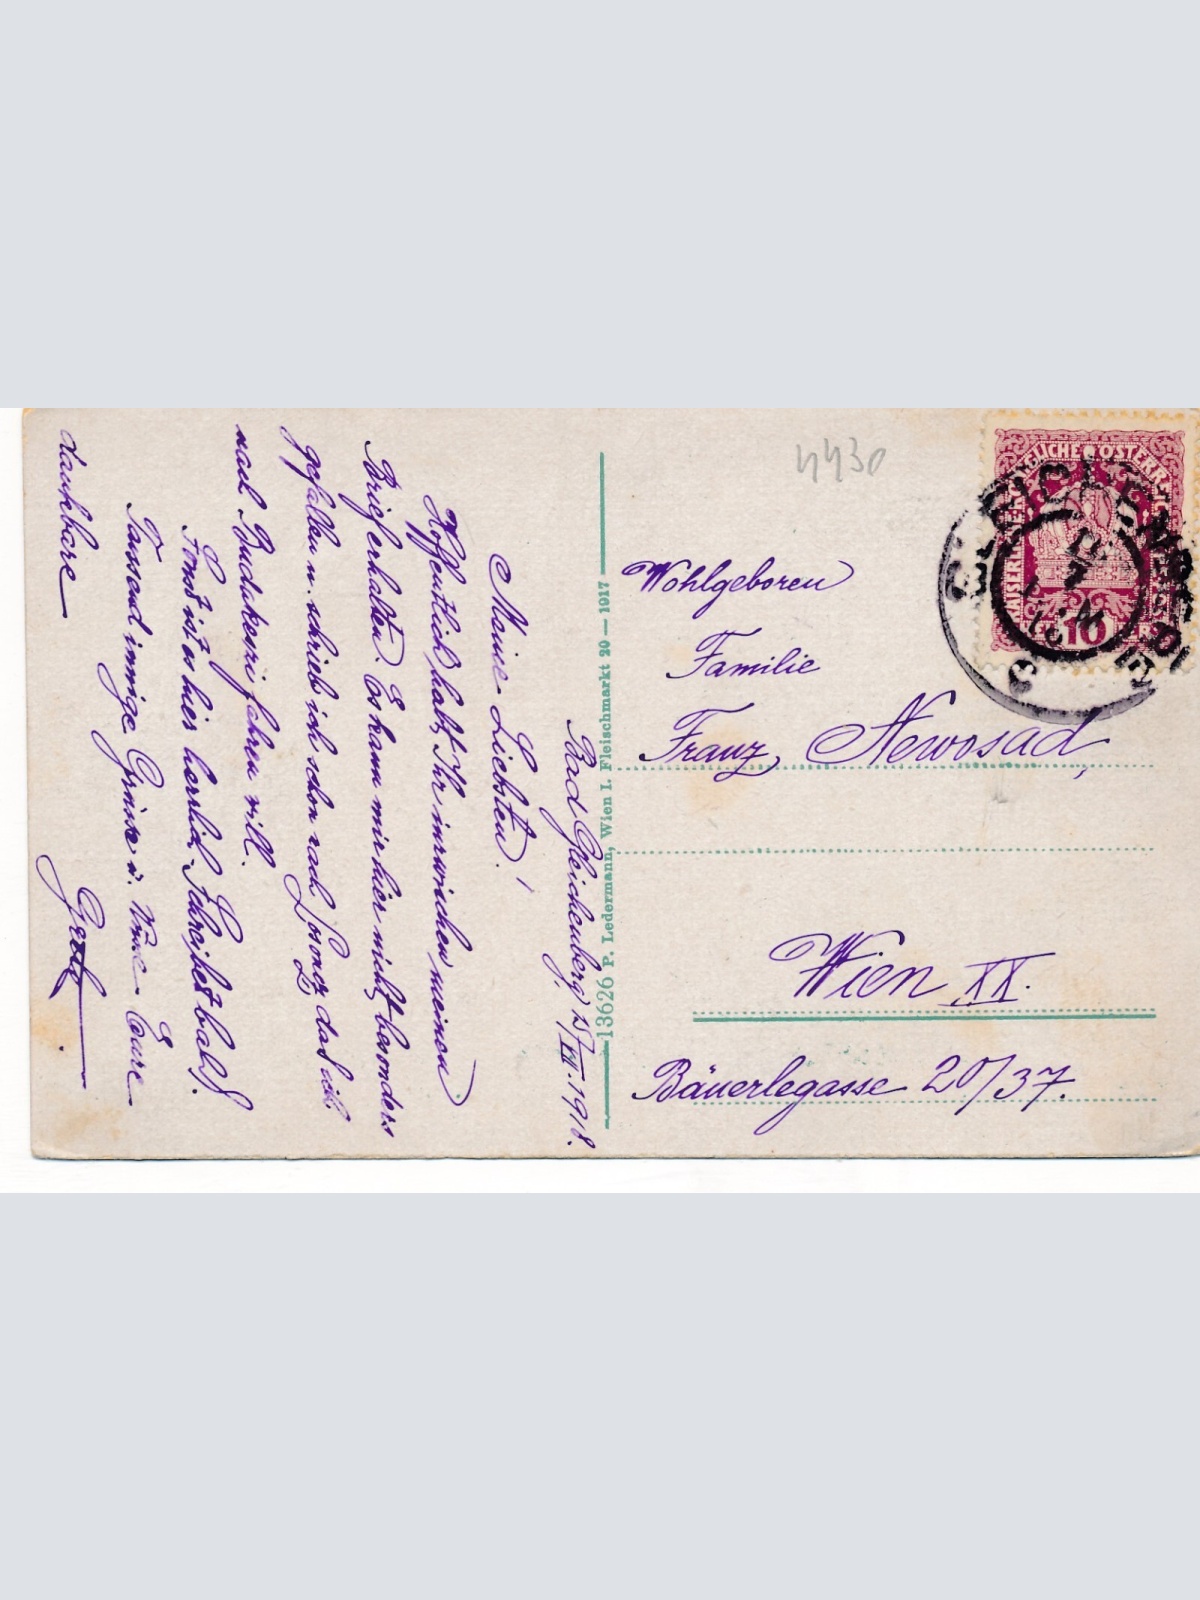 Bad Gleichenberg 15/VI. 1918.
Meine Liebsten!
Hoffentlich habt Ihr inzwischen meinen
Brief erhalten. Es kann mir hier nicht besonders
gefallen u. schrieb ich schon nach Losoncz das ich
nach Budakeszi fahren will.
Sonst ist es hier herrlich. Schreibet bald!
Tausend innige Grüsse u. Eure
dankbare
13626 P. Ledermann, Wien I. Fleischmarkt 20 — 1917
4430
Wohlgeboren
Familie
Franz Newosad,
Wien XX.
Bäuerlegasse 20/37.
KAISERLICHE KÖNIGLICHE ÖSTERR.
10
GLEICHENBERG